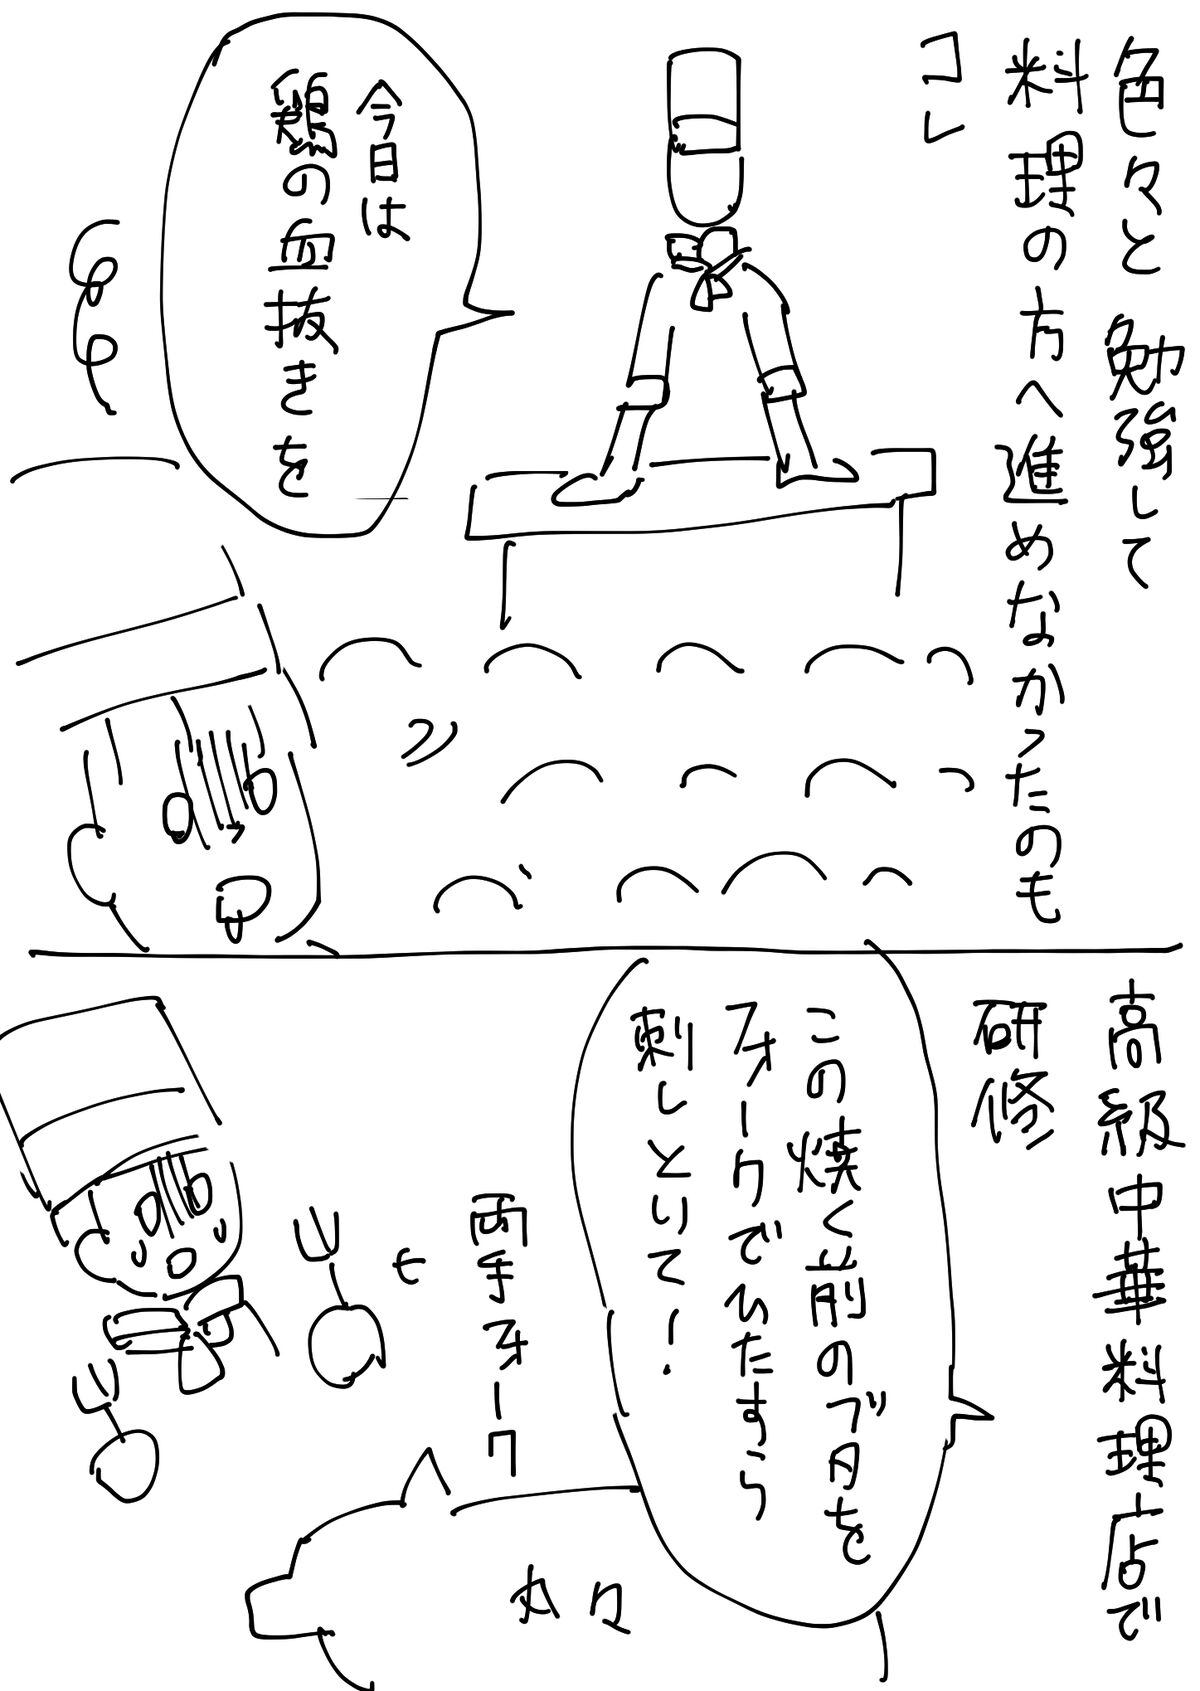 色々と勉強して
料理の方へ進めなかったのも
コレ
今日は
鶏の血抜きを
高級中華料理店で
研修
この焼く前のブタを
フォークでひたすら
刺しとりて!
両手フォーク
モ
丸々